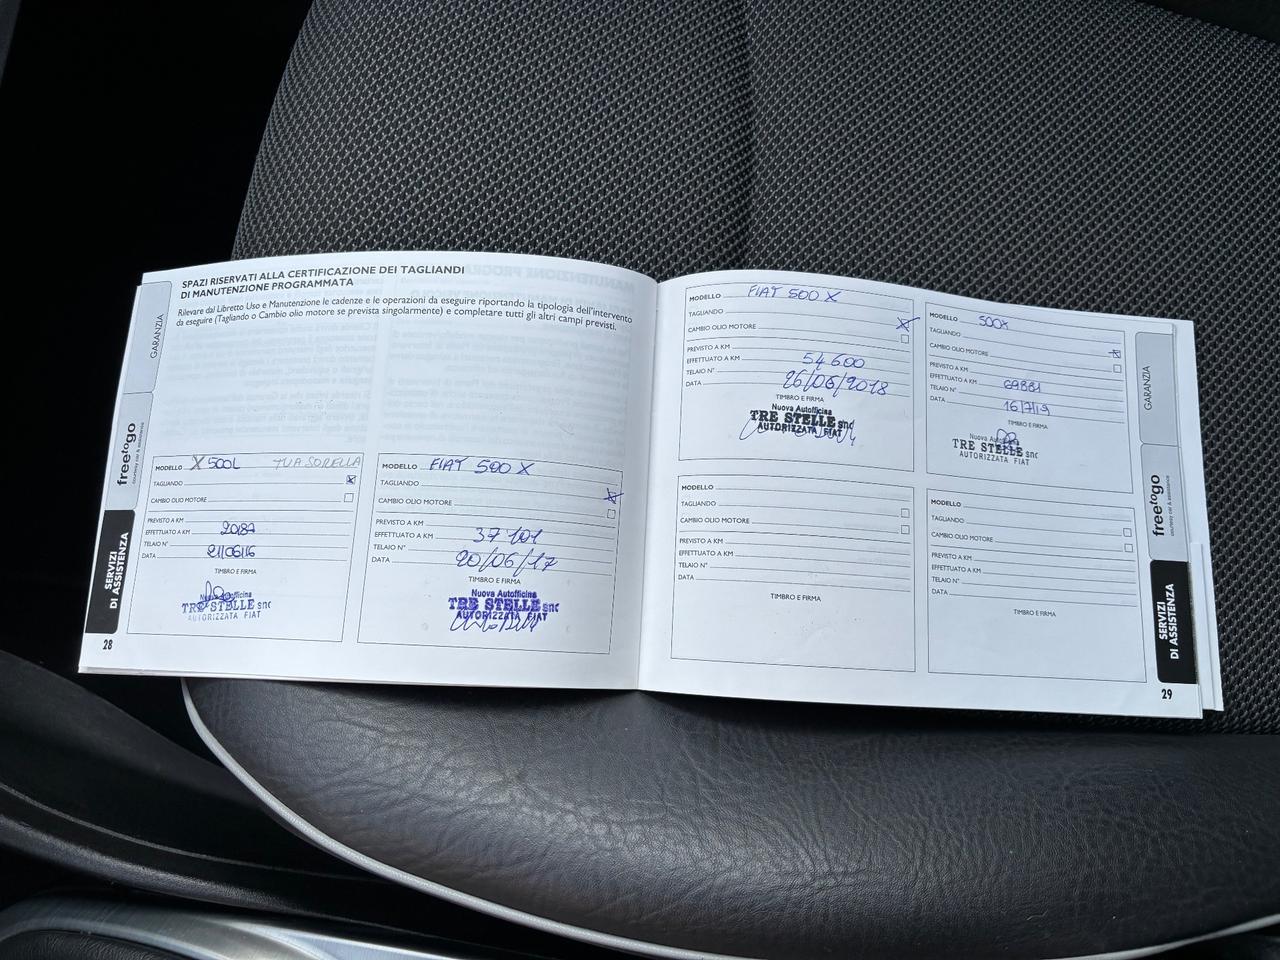 SPAZI RISERVATI ALLA CERTIFICAZIONE DEI TAGLIANDI
DI MANUTENZIONE PROGRAMMATA
Rilevare dal Libretto Uso e Manutenzione le cadenze e le operazioni da eseguire riportando la tipologia dell'intervento
da eseguire (Tagliando o Cambio olio motore se prevista singolarmente) e completare tutti gli altri campi previsti.
GARANZIA
freetogo
courtesy car & assistance
SERVIZI
DI ASSISTENZA
MODELLO X 500L TUA SORELLA
TAGLIANDO
CAMBIO OLIO MOTORE
PREVISTO A KM
EFFETTUATO A KM
TELAIO N°
DATA 21/06/16
TIMBRO E FIRMA
Nuova Autofficina
TRE STELLE snc
AUTORIZZATA FIAT
28
MODELLO FIAT 500 X
TAGLIANDO
CAMBIO OLIO MOTORE
PREVISTO A KM
EFFETTUATO A KM 37101
TELAIO N°
DATA 20/06/17
TIMBRO E FIRMA
Nuova Autofficina
TRE STELLE snc
AUTORIZZATA FIAT
MODELLO FIAT 500 X
TAGLIANDO
CAMBIO OLIO MOTORE
PREVISTO A KM
EFFETTUATO A KM 54600
TELAIO N°
DATA 26/06/2018
TIMBRO E FIRMA
Nuova Autofficina
TRE STELLE snc
AUTORIZZATA FIAT
MODELLO 500X
TAGLIANDO
CAMBIO OLIO MOTORE
PREVISTO A KM
EFFETTUATO A KM 69881
TELAIO N°
DATA 16/7/19
TIMBRO E FIRMA
Nuova Autofficina
TRE STELLE snc
AUTORIZZATA FIAT
MODELLO
TAGLIANDO
CAMBIO OLIO MOTORE
PREVISTO A KM
EFFETTUATO A KM
TELAIO N°
DATA
TIMBRO E FIRMA
MODELLO
TAGLIANDO
CAMBIO OLIO MOTORE
PREVISTO A KM
EFFETTUATO A KM
TELAIO N°
DATA
TIMBRO E FIRMA
GARANZIA
freetogo
courtesy car & assistance
SERVIZI
DI ASSISTENZA
29